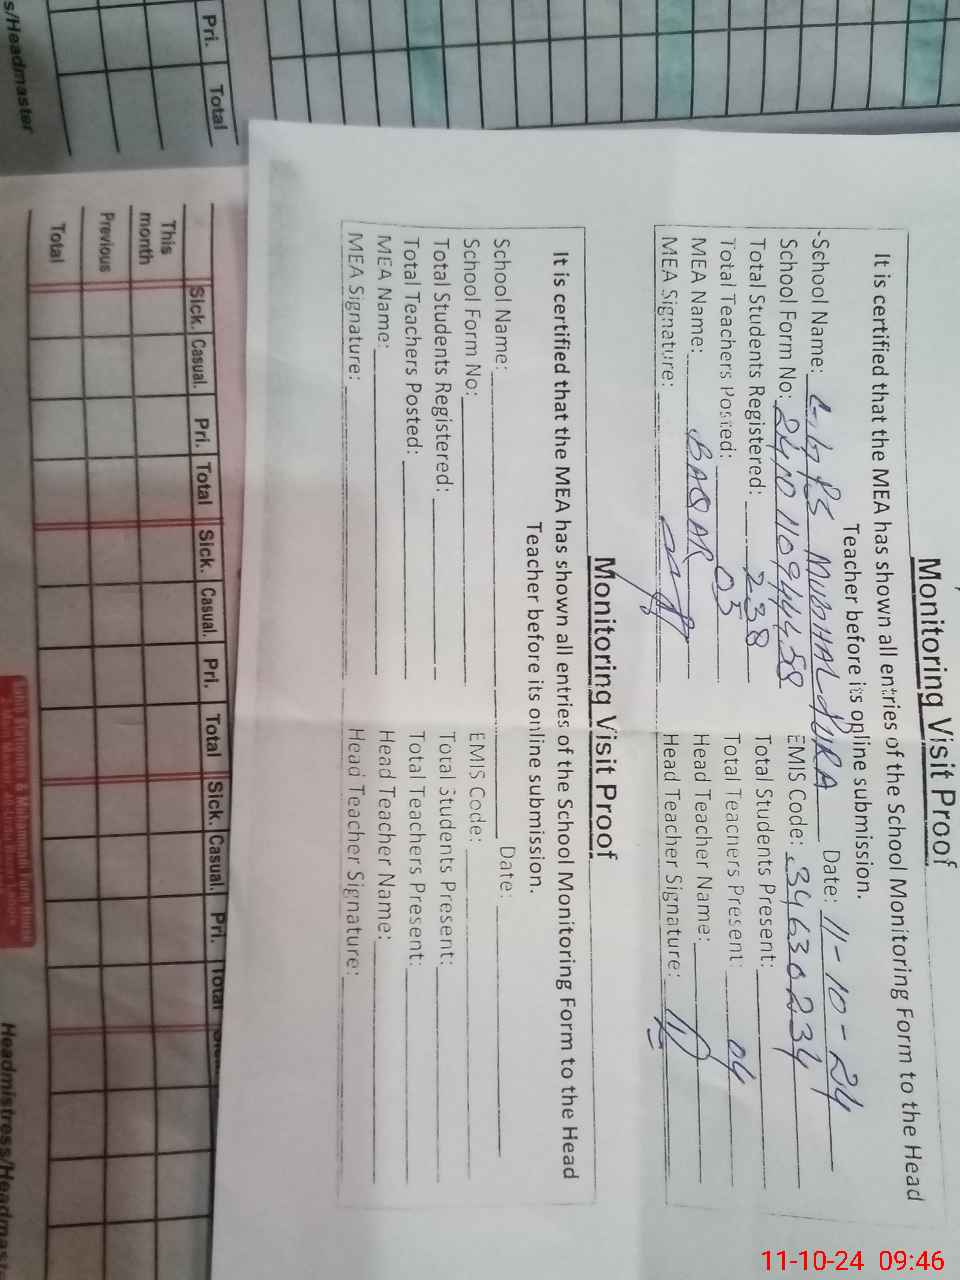 Monitoring Visit Proof
It is certified that the MEA has shown all entries of the School Monitoring Form to the Head
Teacher before its online submission.
School Name: Date: 11-10-24
School Form No: EMIS Code: 34630234
Total Students Registered: 238 Total Students Present:
Total Teachers Posted: 05 Total Teachers Present: 04
MEA Name: BAQAR Head Teacher Name:
MEA Signature: Head Teacher Signature:
Monitoring Visit Proof
It is certified that the MEA has shown all entries of the School Monitoring Form to the Head
Teacher before its online submission.
School Name: Date:
School Form No: EMIS Code:
Total Students Registered: Total Students Present:
Total Teachers Posted: Total Teachers Present:
MEA Name: Head Teacher Name:
MEA Signature: Head Teacher Signature:
Pri. Total
s/Headmaster
Sick. Casual. Pri. Total Sick. Casual. Pri. Total Sick. Casual. Pri. Total
This
month
Previous
Total
Headmistress/Headmaste
11-10-24 09:46